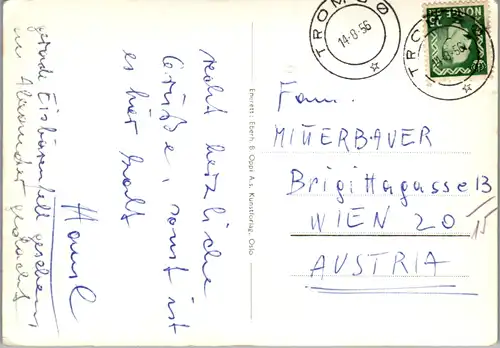 recht herzliche
Grüße, sonst ist
es hier kalt
Hansl
gerade Eisbärenfell gesehen
an Alexander gedacht
Enerett: Eberh. B. Oppi A.s. Kunstforlag, Oslo
TROMSØ
14-8-56
NOREG
25
TRO
8-56
Fam.
MITTERBAUER
Brigittagasse 13
WIEN 20
15
AUSTRIA